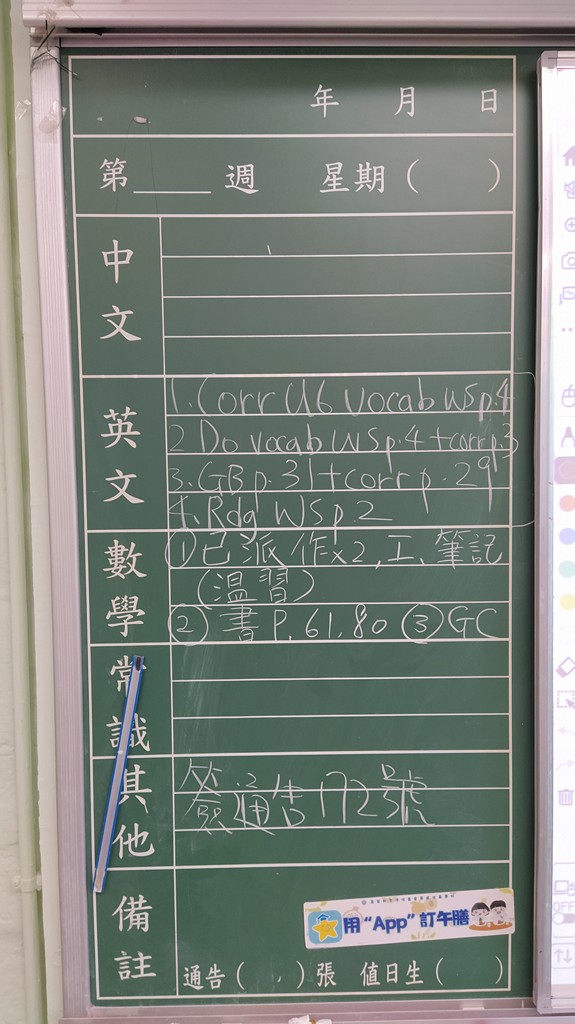 年 月 日
第____週 星期( )
中文
英文
1. Corr U6 vocab WS p.4
2 Do vocab WS p.4 + corr p.3
3. GB p.31 + corr p.29
4. Rdg WS p.2
數學
①已派作x2, 工、筆記
(溫習)
② 書 P.61.80 ③ GC
常識
其他
簽通告172號
備註
用“App”訂午膳
通告( , )張 值日生( )